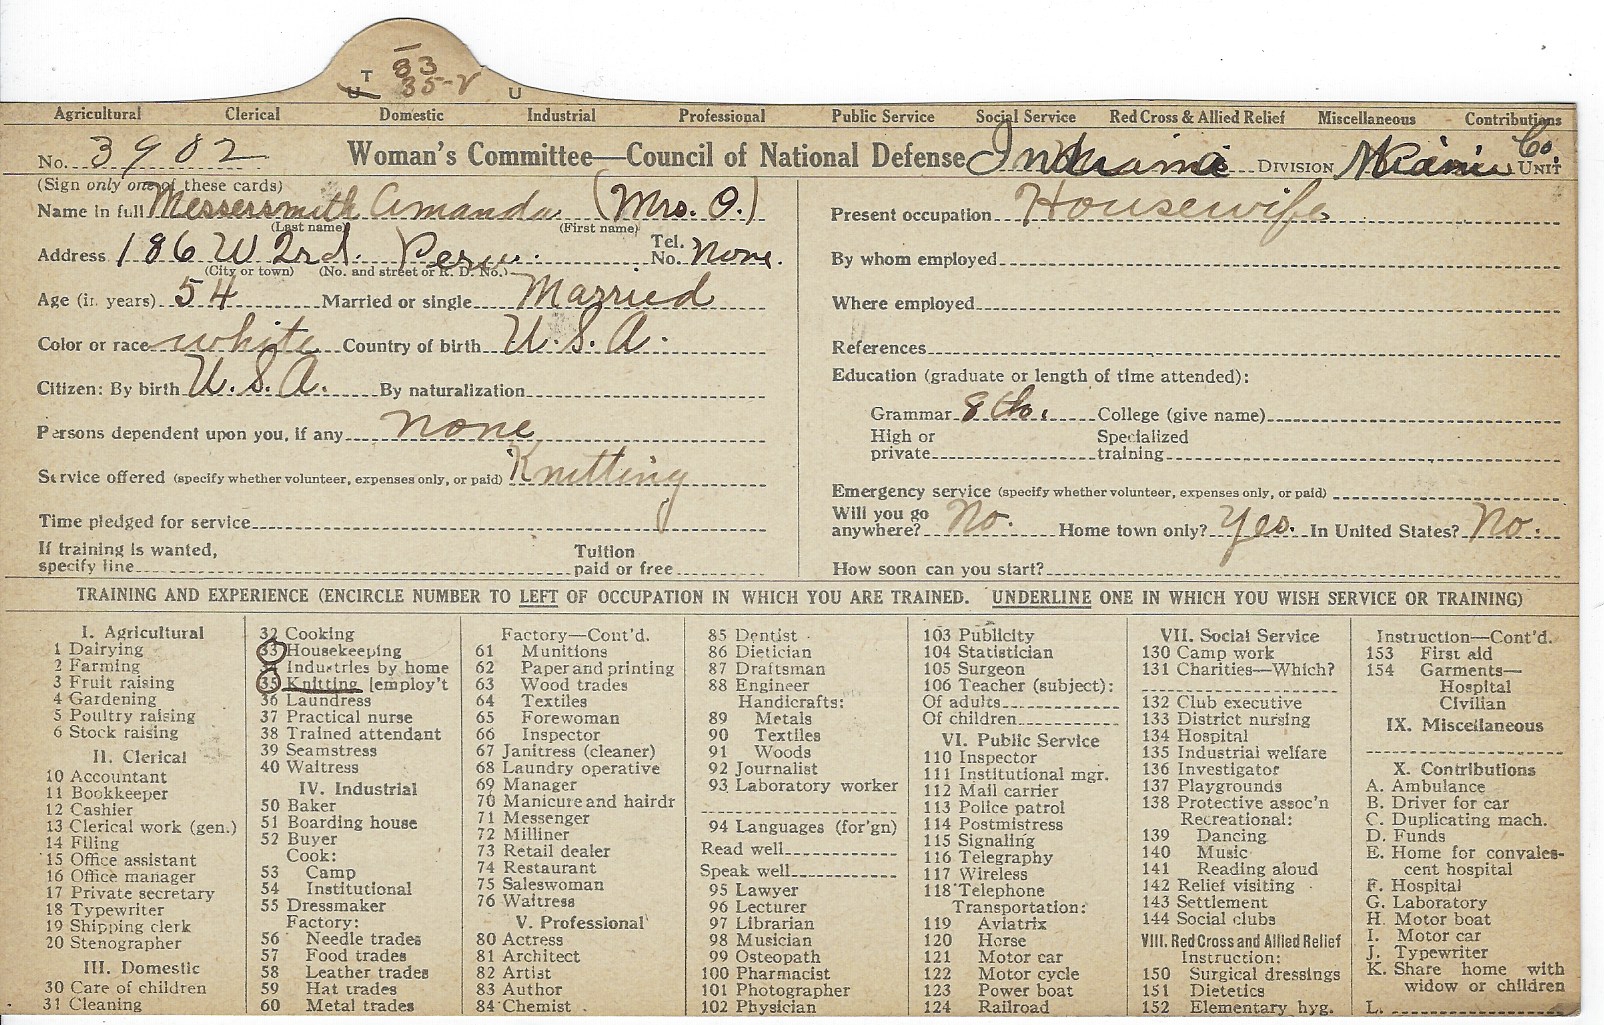 33
T 35-V
U U
Agricultural Clerical Domestic Industrial Professional Public Service Social Service Red Cross & Allied Relief Miscellaneous Contributions
No. 3982 Woman's Committee—Council of National Defense Indiana DIVISION Miami Co. UNIT
(Sign only one of these cards)
Name in full Messersmith Amanda (Mrs. O.)
(Last name) (First name)
Address 186 W 2rd. Peru. Tel. No. None.
(City or town) (No. and street or R. D. No.)
Age (in years) 54 Married or single Married
Color or race white Country of birth U.S.A.
Citizen: By birth U.S.A. By naturalization
Persons dependent upon you, if any none
Service offered (specify whether volunteer, expenses only, or paid) Knitting
Time pledged for service
If training is wanted, specify line Tuition paid or free
Present occupation Housewife
By whom employed
Where employed
References
Education (graduate or length of time attended):
Grammar 8th. College (give name)
High or private Specialized training
Emergency service (specify whether volunteer, expenses only, or paid)
Will you go anywhere? No. Home town only? Yes. In United States? No.
How soon can you start?
TRAINING AND EXPERIENCE (ENCIRCLE NUMBER TO LEFT OF OCCUPATION IN WHICH YOU ARE TRAINED. UNDERLINE ONE IN WHICH YOU WISH SERVICE OR TRAINING)
I. Agricultural
1 Dairying
2 Farming
3 Fruit raising
4 Gardening
5 Poultry raising
6 Stock raising
II. Clerical
10 Accountant
11 Bookkeeper
12 Cashier
13 Clerical work (gen.)
14 Filing
15 Office assistant
16 Office manager
17 Private secretary
18 Typewriter
19 Shipping clerk
20 Stenographer
III. Domestic
30 Care of children
31 Cleaning
32 Cooking
33 Housekeeping
34 Industries by home
35 Knitting [employ't
36 Laundress
37 Practical nurse
38 Trained attendant
39 Seamstress
40 Waitress
IV. Industrial
50 Baker
51 Boarding house
52 Buyer
Cook:
53 Camp
54 Institutional
55 Dressmaker
Factory:
56 Needle trades
57 Food trades
58 Leather trades
59 Hat trades
60 Metal trades
Factory—Cont'd.
61 Munitions
62 Paper and printing
63 Wood trades
64 Textiles
65 Forewoman
66 Inspector
67 Janitress (cleaner)
68 Laundry operative
69 Manager
70 Manicure and hairdr
71 Messenger
72 Milliner
73 Retail dealer
74 Restaurant
75 Saleswoman
76 Waitress
V. Professional
80 Actress
81 Architect
82 Artist
83 Author
84 Chemist
85 Dentist
86 Dietician
87 Draftsman
88 Engineer
Handicrafts:
89 Metals
90 Textiles
91 Woods
92 Journalist
93 Laboratory worker
94 Languages (for'gn)
Read well
Speak well
95 Lawyer
96 Lecturer
97 Librarian
98 Musician
99 Osteopath
100 Pharmacist
101 Photographer
102 Physician
103 Publicity
104 Statistician
105 Surgeon
106 Teacher (subject):
Of adults
Of children
VI. Public Service
110 Inspector
111 Institutional mgr.
112 Mail carrier
113 Police patrol
114 Postmistress
115 Signaling
116 Telegraphy
117 Wireless
118 Telephone
Transportation:
119 Aviatrix
120 Horse
121 Motor car
122 Motor cycle
123 Power boat
124 Railroad
VII. Social Service
130 Camp work
131 Charities—Which?
132 Club executive
133 District nursing
134 Hospital
135 Industrial welfare
136 Investigator
137 Playgrounds
138 Protective assoc'n
Recreational:
139 Dancing
140 Music
141 Reading aloud
142 Relief visiting
143 Settlement
144 Social clubs
VIII. Red Cross and Allied Relief
Instruction:
150 Surgical dressings
151 Dietetics
152 Elementary hyg.
Instruction—Cont'd.
153 First aid
154 Garments—
Hospital
Civilian
IX. Miscellaneous
X. Contributions
A. Ambulance
B. Driver for car
C. Duplicating mach.
D. Funds
E. Home for convales-
cent hospital
F. Hospital
G. Laboratory
H. Motor boat
I. Motor car
J. Typewriter
K. Share home with
widow or children
L.